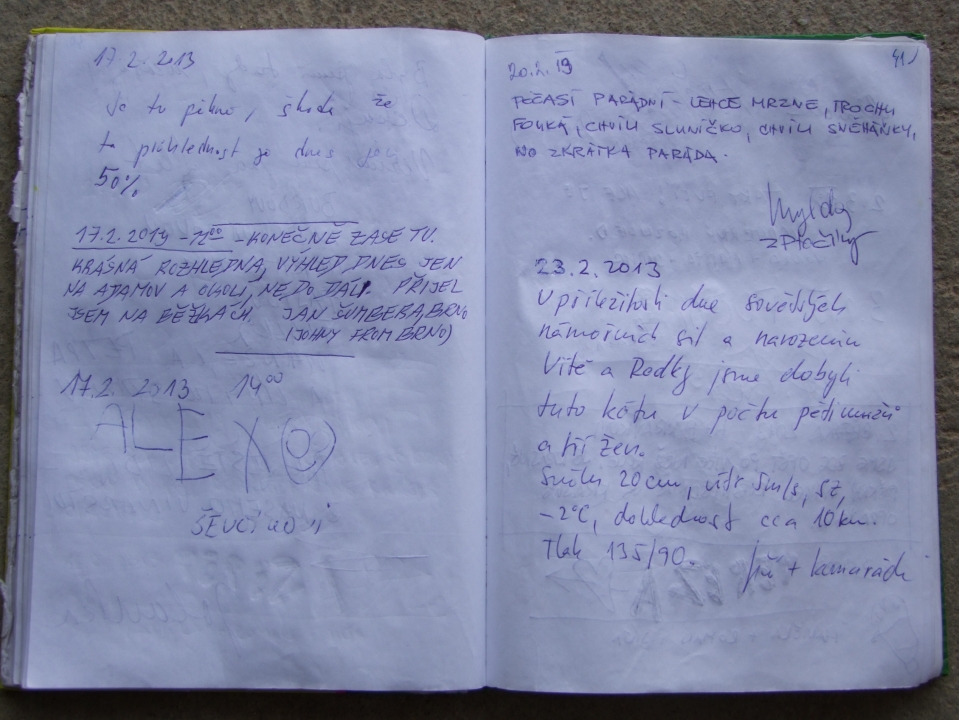 17 2. 2013
Je tu pěkně, škoda že
ta průhlednost je dnes jen
50%
17.2.2013 - 11⁰⁰ - KONEČNĚ ZASE TU.
KRÁSNÁ ROZHLEDNA, VÝHLED DNES JEN
NA ADAMOV A OKOLÍ, NEDO DÁLI. PŘIJEL
JSEM NA BĚŽKÁCH. JAN ŠUMBERA, BRNO
(JOHNY FROM BRNO)
17.2. 2013 14⁰⁰
ALEX
ŠEVČÍKOVI
41)
20.2.13
POČASÍ PARÁDNÍ - LEHCE MRZNE, TROCHU
FOUKÁ, CHVÍLI SLUNÍČKO, CHVÍLI SNĚHÁNKY,
NO ZKRÁTKA PARÁDA.
23.2.2013
U příležitosti dne sovětských
námořních sil a narozenin
Vítě a Radky jsme dobyli
tuto kótu v počtu pěti mužů
a tří žen.
Sněhu 20cm, vítr 5m/s, SZ,
-2°C, dohlednost cca 10km.
Tlak 135/90.
Jiří + kamarádi